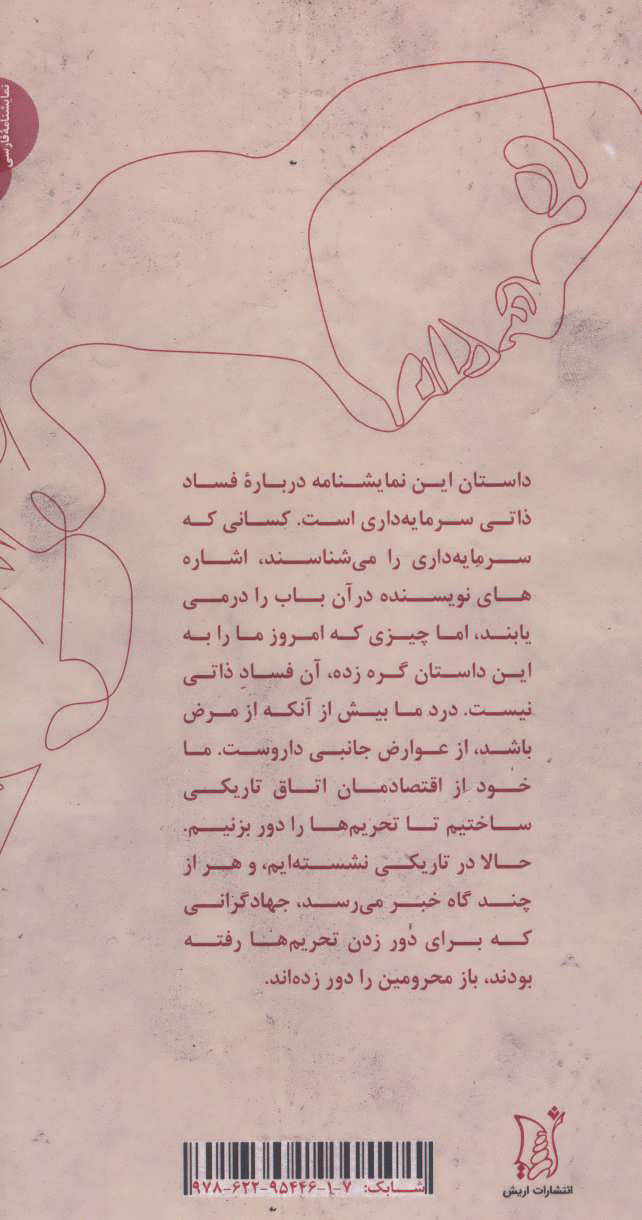 نمایشنامهٔ فارسی
داستان این نمایشنامه دربارهٔ فساد
ذاتی سرمایه‌داری است. کسانی که
سرمایه‌داری را می‌شناسند، اشاره
های نویسنده درآن باب را درمی
یابند، اما چیزی که امروز ما را به
این داستان گره زده، آن فسادِ ذاتی
نیست. درد ما بیش از آنکه از مرض
باشد، از عوارض جانبی داروست. ما
خود از اقتصادمان اتاق تاریکی
ساختیم تا تحریم‌ها را دور بزنیم.
حالا در تاریکی نشسته‌ایم، و هر از
چند گاه خبر می‌رسد، جهادگرانی
که برای دُور زدن تحریم‌ها رفته
بودند، باز محرومین را دور زده‌اند.
شابک: ۷-۱-۹۵۴۴۶-۶۲۲-۹۷۸
انتشارات اریش